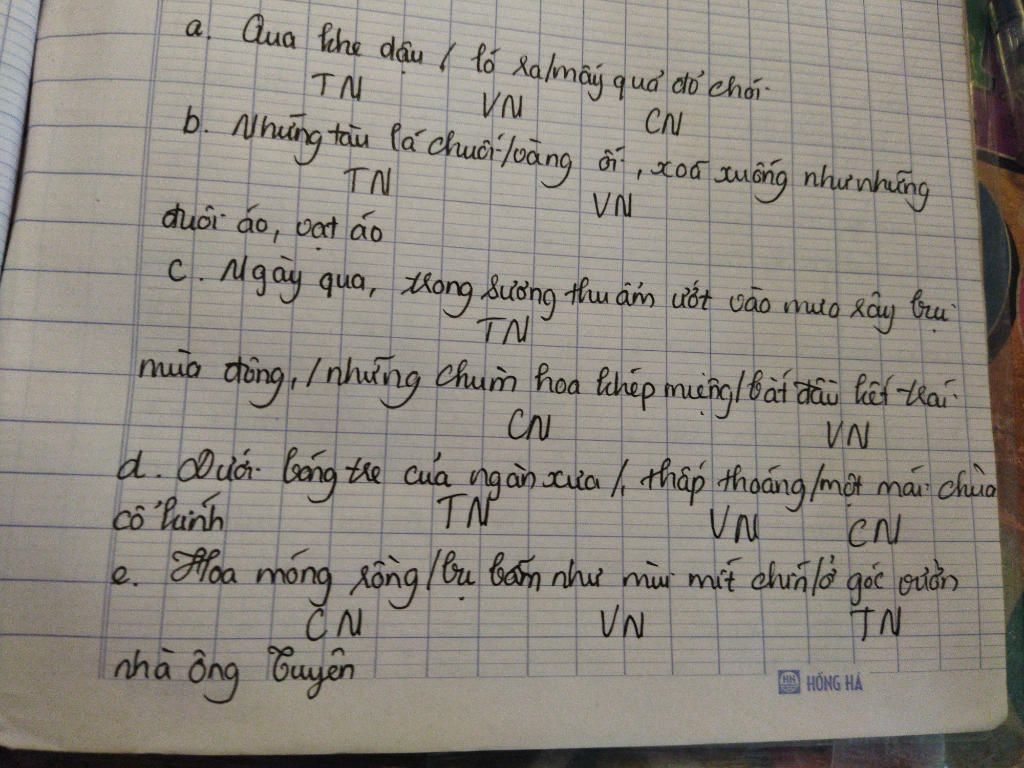 a. Qua khe dậu / ló ra/mấy quả đỏ chói.
TN VN CN
b. Những tàu lá chuối/vàng ối, xoã xuống như những
TN VN
đuôi áo, vạt áo
c. Ngày qua, trong sương thu ẩm ướt vào mưa rây bụi
TN
mùa đông, / những chùm hoa khép miệng/bắt đầu kết trái.
CN VN
d. Dưới bóng tre của ngàn xưa /, thấp thoáng/một mái chùa
TN VN CN
cổ kính
e. Hoa móng rồng/bụ bẫm như mùi mít chín/ở góc vườn
CN VN TN
nhà ông Tuyên
HH HỒNG HÀ